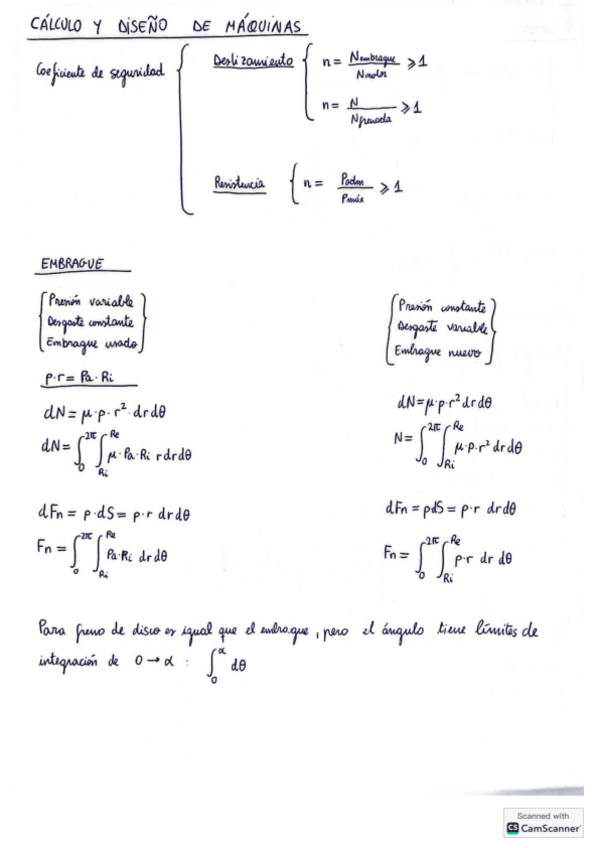 CÁLCULO Y DISEÑO DE MÁQUINAS
Coeficiente de seguridad
Deslizamiento
n = Nembrague / Nmotor ⩾ 1
n = N / Nfrenada ⩾ 1
Resistencia
n = Padm / Pmáx ⩾ 1
EMBRAGUE
Presión variable
Desgaste constante
Embrague usado
p·r = Pa·Ri
dN = μ·p·r²·drdθ
dN = ∫₀^2π ∫Ri^Re μ·Pa·Ri rdrdθ
dFn = p·dS = p·r drdθ
Fn = ∫₀^2π ∫Ri^Re Pa·Ri drdθ
Presión constante
Desgaste variable
Embrague nuevo
dN = μ·p·r² drdθ
N = ∫₀^2π ∫Ri^Re μ·p·r² drdθ
dFn = pdS = p·r drdθ
Fn = ∫₀^2π ∫Ri^Re p·r dr dθ
Para freno de disco es igual que el embrague, pero el ángulo tiene límites de
integración de 0 → α : ∫₀^α dθ
Scanned with
CS CamScanner